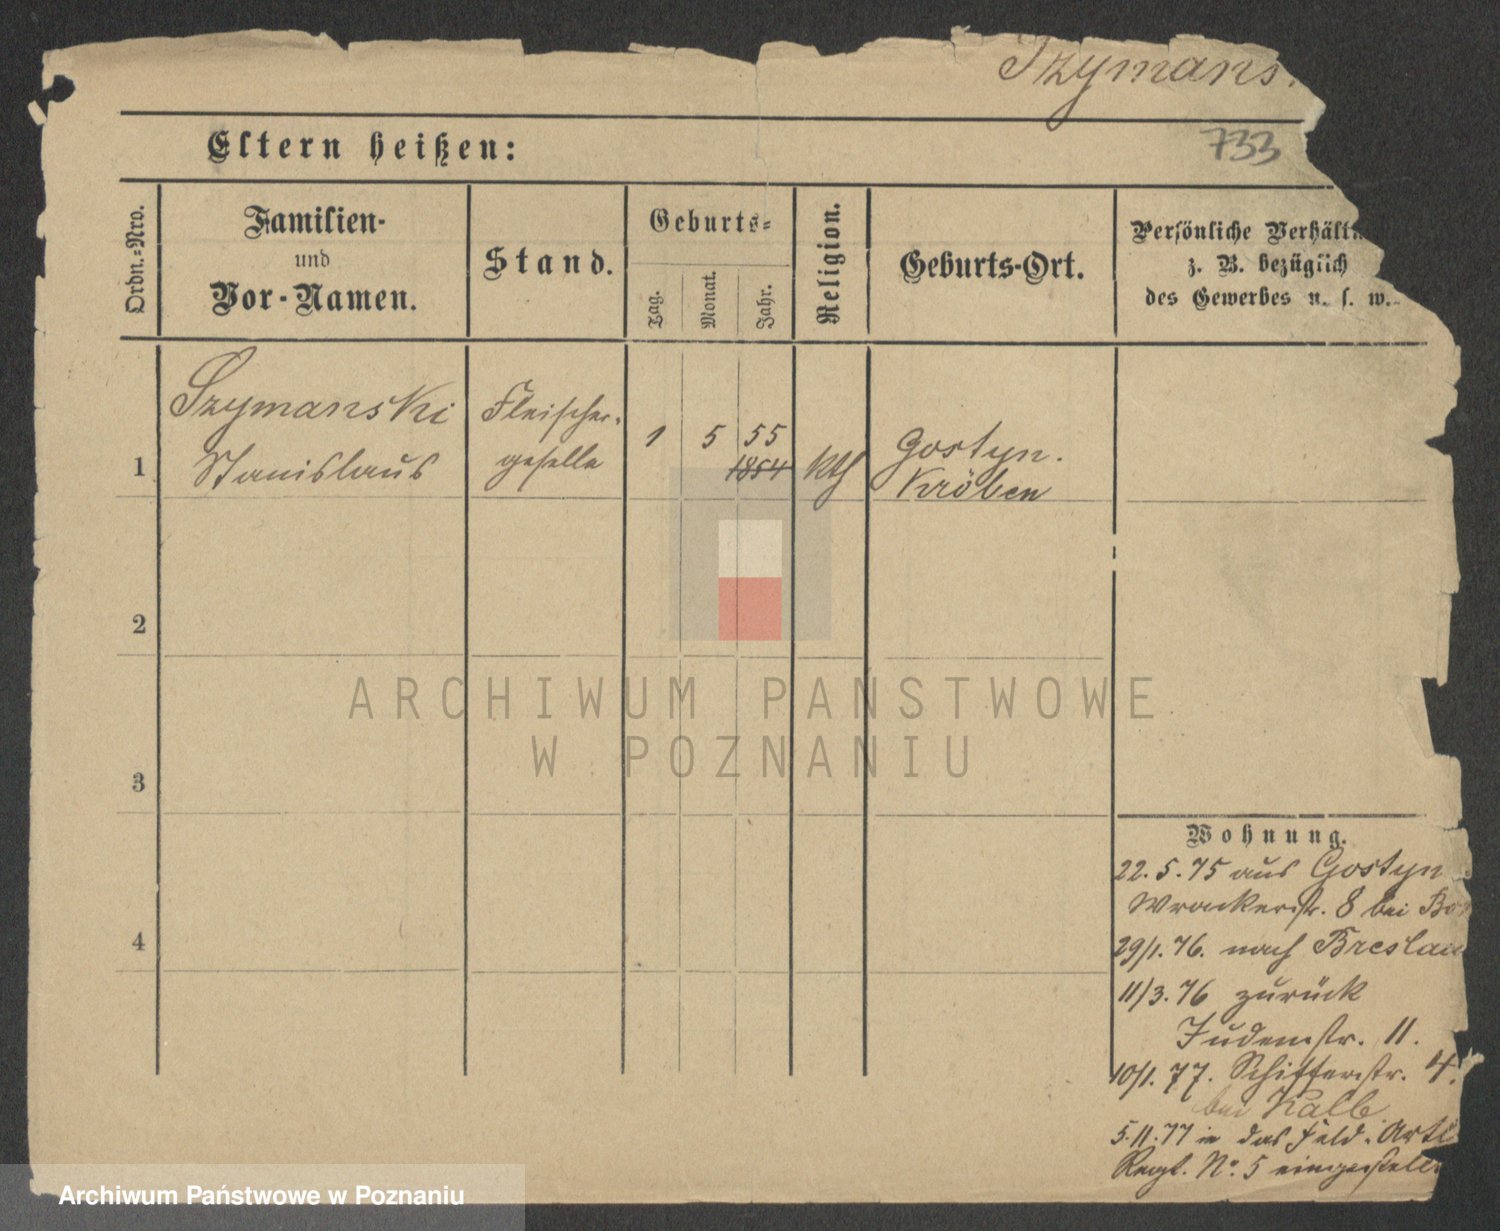 Szymans
733
Eltern heißen:
Ordn.-Nro.
Familien-
und
Vor-Namen.
Stand.
Geburts-
Tag.
Monat.
Jahr.
Religion.
Geburts-Ort.
Persönliche Verhältn
z. B. bezüglich
des Gewerbes u. s. w.
1
Szymanski
Stanislaus
Fleischer-
geselle
1
5
55
1854
kth
Gostyn.
Kröben
2
3
4
Wohnung.
22.5.75 aus Gostyn
Wronkerstr. 8 bei
29/1.76. nach Breslau
11/3.76 zurück
Judenstr. 11.
10/1.77. Schifferstr. 4.
bei Kalb
5.11.77 in das Feld-Arti
Regt. No. 5 eingestell
ARCHIWUM PANSTWOWE
W POZNANIU
Archiwum Państwowe w Poznaniu